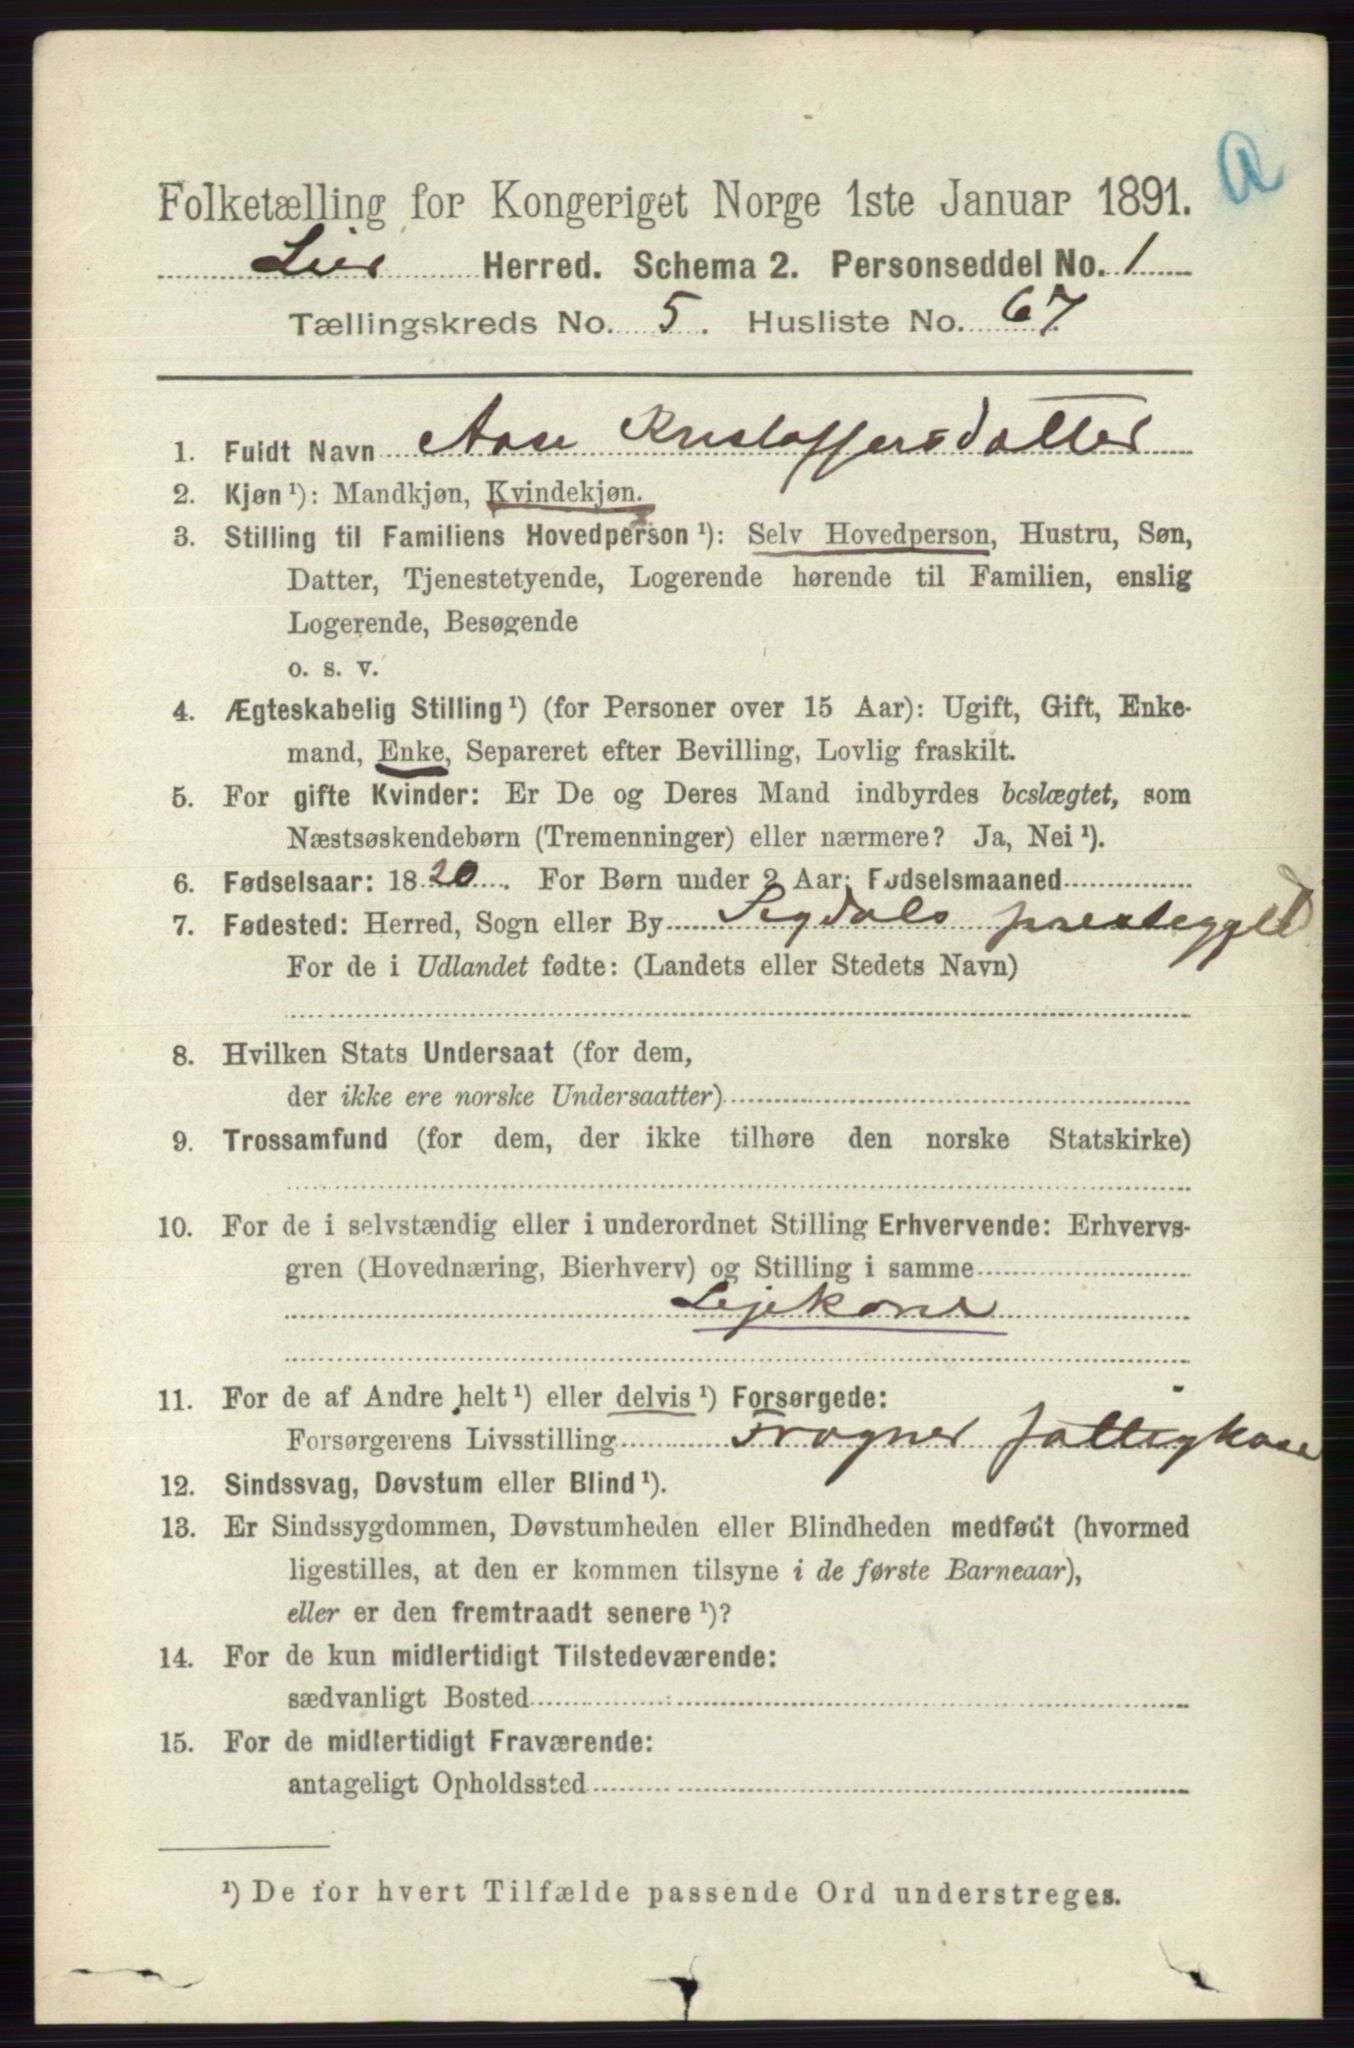 a
Folketælling for Kongeriget Norge 1ste Januar 1891.
Lier Herred. Schema 2. Personseddel No. 1
Tællingskreds No. 5. Husliste No. 67
1. Fuldt Navn Aase Kristoffersdatter
2. Kjøn¹): Mandkjøn, Kvindekjøn.
3. Stilling til Familiens Hovedperson¹): Selv Hovedperson, Hustru, Søn,
Datter, Tjenestetyende, Logerende hørende til Familien, enslig
Logerende, Besøgende
o. s. v.
4. Ægteskabelig Stilling¹) (for Personer over 15 Aar): Ugift, Gift, Enke-
mand, Enke, Separeret efter Bevilling, Lovlig fraskilt.
5. For gifte Kvinder: Er De og Deres Mand indbyrdes beslægtet, som
Næstsøskendebørn (Tremenninger) eller nærmere? Ja, Nei¹).
6. Fødselsaar: 1820. For Børn under 2 Aar: Fødselsmaaned
7. Fødested: Herred, Sogn eller By Sigdals prestegjeld
For de i Udlandet fødte: (Landets eller Stedets Navn)
8. Hvilken Stats Undersaat (for dem,
der ikke ere norske Undersaatter)
9. Trossamfund (for dem, der ikke tilhøre den norske Statskirke)
10. For de i selvstændig eller i underordnet Stilling Erhvervende: Erhvervs-
gren (Hovednæring, Bierhverv) og Stilling i samme
Lejekone
11. For de af Andre helt¹) eller delvis¹) Forsørgede:
Forsørgerens Livsstilling Frogner fattigkase
12. Sindssvag, Døvstum eller Blind¹).
13. Er Sindssygdommen, Døvstumheden eller Blindheden medfødt (hvormed
ligestilles, at den er kommen tilsyne i de første Barneaar),
eller er den fremtraadt senere¹)?
14. For de kun midlertidigt Tilstedeværende:
sædvanligt Bosted
15. For de midlertidigt Fraværende:
antageligt Opholdssted
¹) De for hvert Tilfælde passende Ord understreges.